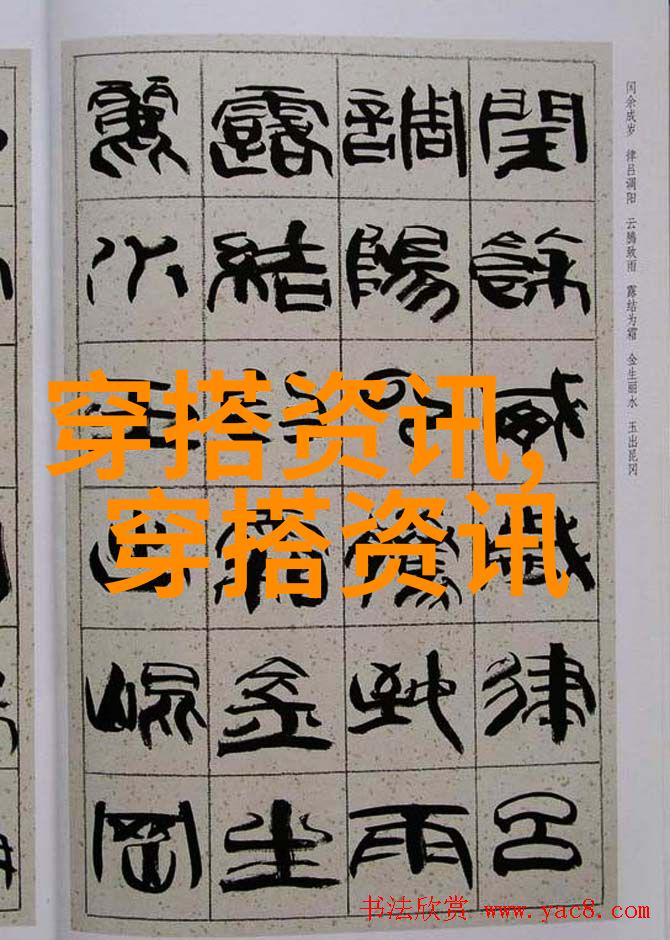 闰余成岁　律吕调阳　云腾致雨　露结为霜　金生丽水　玉出昆冈
閏餘成歲律呂
調陽雲騰致雨
露結為霜金生
麗水玉出崐岡
穿搭资讯,
穿搭资讯
书法欣赏 www.yac8.com